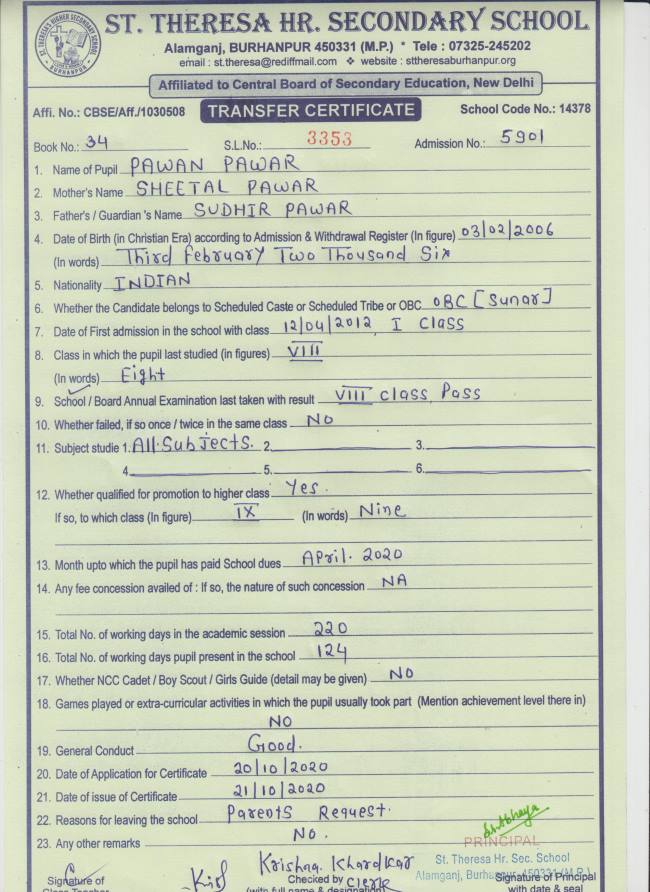 ST. THERESA HR. SECONDARY SCHOOL
Alamganj, BURHANPUR 450331 (M.P.) * Tele : 07325-245202
email : st.theresa@rediffmail.com ❖ website : sttheresaburhanpur.org
Affiliated to Central Board of Secondary Education, New Delhi
Affi. No.: CBSE/Aff./1030508 TRANSFER CERTIFICATE School Code No.: 14378
Book No.: 34 S.L.No.: 3353 Admission No.: 5901
1. Name of Pupil PAWAN PAWAR
2. Mother's Name SHEETAL PAWAR
3. Father's / Guardian 's Name SUDHIR PAWAR
4. Date of Birth (in Christian Era) according to Admission & Withdrawal Register (In figure) 03/02/2006
(In words) Third February Two Thousand Six
5. Nationality INDIAN
6. Whether the Candidate belongs to Scheduled Caste or Scheduled Tribe or OBC OBC [Sunar]
7. Date of First admission in the school with class 12/04/2012, I Class
8. Class in which the pupil last studied (in figures) VIII
(In words) Eight
9. School / Board Annual Examination last taken with result VIII class Pass
10. Whether failed, if so once / twice in the same class NO
11. Subject studie 1. All Subjects. 2. 3.
4. 5. 6.
12. Whether qualified for promotion to higher class Yes.
If so, to which class (In figure) IX (In words) Nine
13. Month upto which the pupil has paid School dues April. 2020
14. Any fee concession availed of : If so, the nature of such concession NA
15. Total No. of working days in the academic session 220
16. Total No. of working days pupil present in the school 124
17. Whether NCC Cadet / Boy Scout / Girls Guide (detail may be given) NO
18. Games played or extra-curricular activities in which the pupil usually took part (Mention achievement level there in)
NO
19. General Conduct Good.
20. Date of Application for Certificate 20/10/2020
21. Date of issue of Certificate 21/10/2020
22. Reasons for leaving the school Parents Request.
23. Any other remarks No.
PRINCIPAL
St. Theresa Hr. Sec. School
Alamganj, Burhanpur 450331 (M.P.)
Krishna Khardkar
Signature of Checked by Clerk Signature of Principal
Class Teacher (with full name & designation) with date & seal